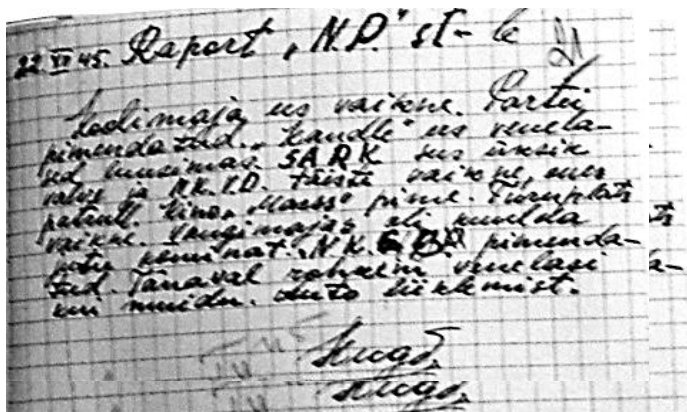 22. XI 45. Raport "N.P." st-le
Kodimaja ees vaikne. Partei
pimendatud. "Kandle" ees venela-
sed SARK ees üksik
valve ja N.K.V.D. täiesti vaikne, uus
patrull. Kino "Marss" pime. Turuplats
vaikne. oli kuulda
N.K.G.B. pimenda-
tud. Tänaval rohkem venelasi
kui muidu. Auto liiklemist.